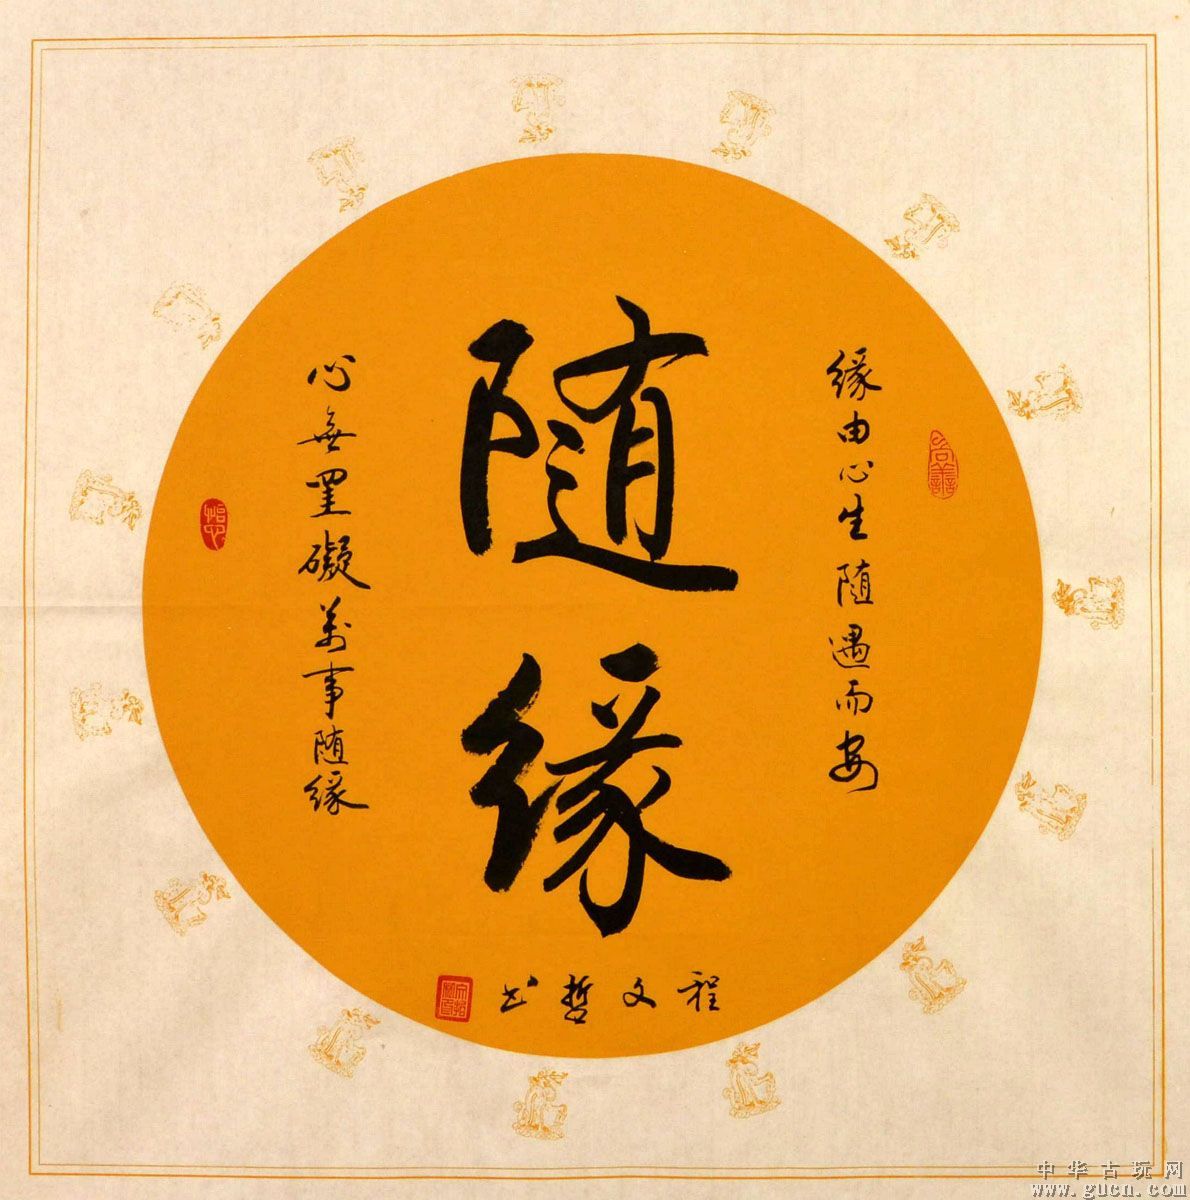 緣由心生随遇而安
随緣
心無罣礙萬事随緣
程文哲书
中华古玩网
www.gucn.com